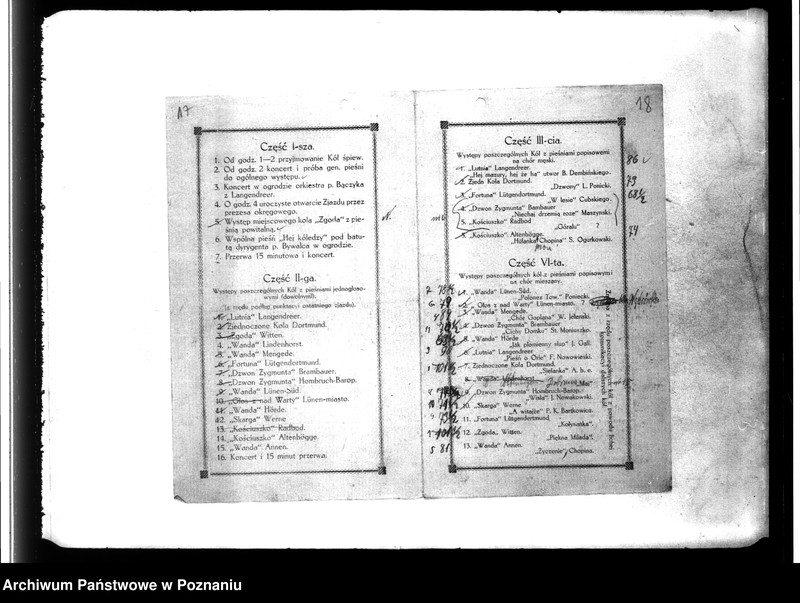 17
Część I-sza.
1. Od godz. 1—2 przyjmowanie Kół śpiew.
2. Od godz. 2 koncert i próba gen. pieśni
do ogólnego występu.
3. Koncert w ogrodzie orkiestra p. Bączyka
z Langendreer.
4. O godz. 4 uroczyste otwarcie Zjazdu przez
prezesa okręgowego.
5. Występ miejscowego koła „Zgoda" z pie-
śnią powitalną.
6. Wspólna pieśń „Hej kóledzy" pod batu-
tą dyrygenta p. Bywalca w ogrodzie.
7. Przerwa 15 minutowa i koncert.
Część II-ga.
Występy poszczególnych Kół z pieśniami jednogłoso-
wymi (dowolnymi).
(z rzędu podług punktacyi ostatniego zjazdu).
1. „Lutnia" Langendreer.
2. Zjednoczone Koła Dortmund.
3. „Zgoda" Witten.
4. „Wanda" Lindenhorst.
5. „Wanda" Mengede.
6. „Fortuna" Lütgendortmund.
7. „Dzwon Zygmunta" Brambauer.
8. „Dzwon Zygmunta" Hombruch-Barop.
9. „Wanda" Lünen-Süd.
10. „Głos z nad Warty" Lünen-miasto.
11. „Wanda" Hörde.
12. „Skarga" Werne
13. „Kościuszko" Radbod.
14. „Kościuszko" Altenbögge.
15. „Wanda" Annen.
16. Koncert i 15 minut przerwa.
18
Część III-cia.
Występy poszczególnych Kół z pieśniami popisowemi
na chór męski.
1. „Lutnia" Langendreer. 86
„Hej mazury, hej że ha" utwor B. Dembińskiego.
2. Zjedn Koła Dortmund. 79
„Dzwony" L. Ponicki.
3. „Fortuna" Lütgendortmund. 68½
„W lesie" Cubskiego.
4. „Dzwon Zygmunta" Bambauer
„Niechaj drzemią roże" Maszynski.
5. „Kościuszko" Radbod
„Górału ?
5. „Kościuszko" Altenbögge. 74
„Hulanka" Chopina" S. Ogirkowski.
Część VI-ta.
Występy poszczególnych kół z pieśniami popisowymi
na chór mieszany.
1. „Wanda" Lünen-Süd.
„Polonez Tow." Poniecki.
2. „Głos z nad Warty" Lünen-miasto. ?
3. „Wanda" Mengede.
„Chór Goplana" W. Jeleński.
4. „Dzwon Zygmunta" Brambauer
„Cichy Domku" St. Moniuszko.
5. „Wanda" Hörde
„Jak płomienny słup" J. Gall.
6. „Lutnia" Langendreer
„Pieśń o Orle" F. Nowowiejski.
7. Zjednoczone Koła Dortmund.
„Sielanka" A. b. e.
8. „Wanda"
9. „Dzwon Zygmunta" Hombruch-Barop.
„Wisła" I. Nowakowski.
10. „Skarga" Werne
„A witajże" P. K. Bartkowicz.
11. „Fortuna" Lütgendortmund.
„Kołysanka".
12. „Zgoda„ Witten.
„Piękna Milada".
5 81 13. „Wanda" Annen.
„Życzenie" Chopina.
Archiwum Państwowe w Poznaniu